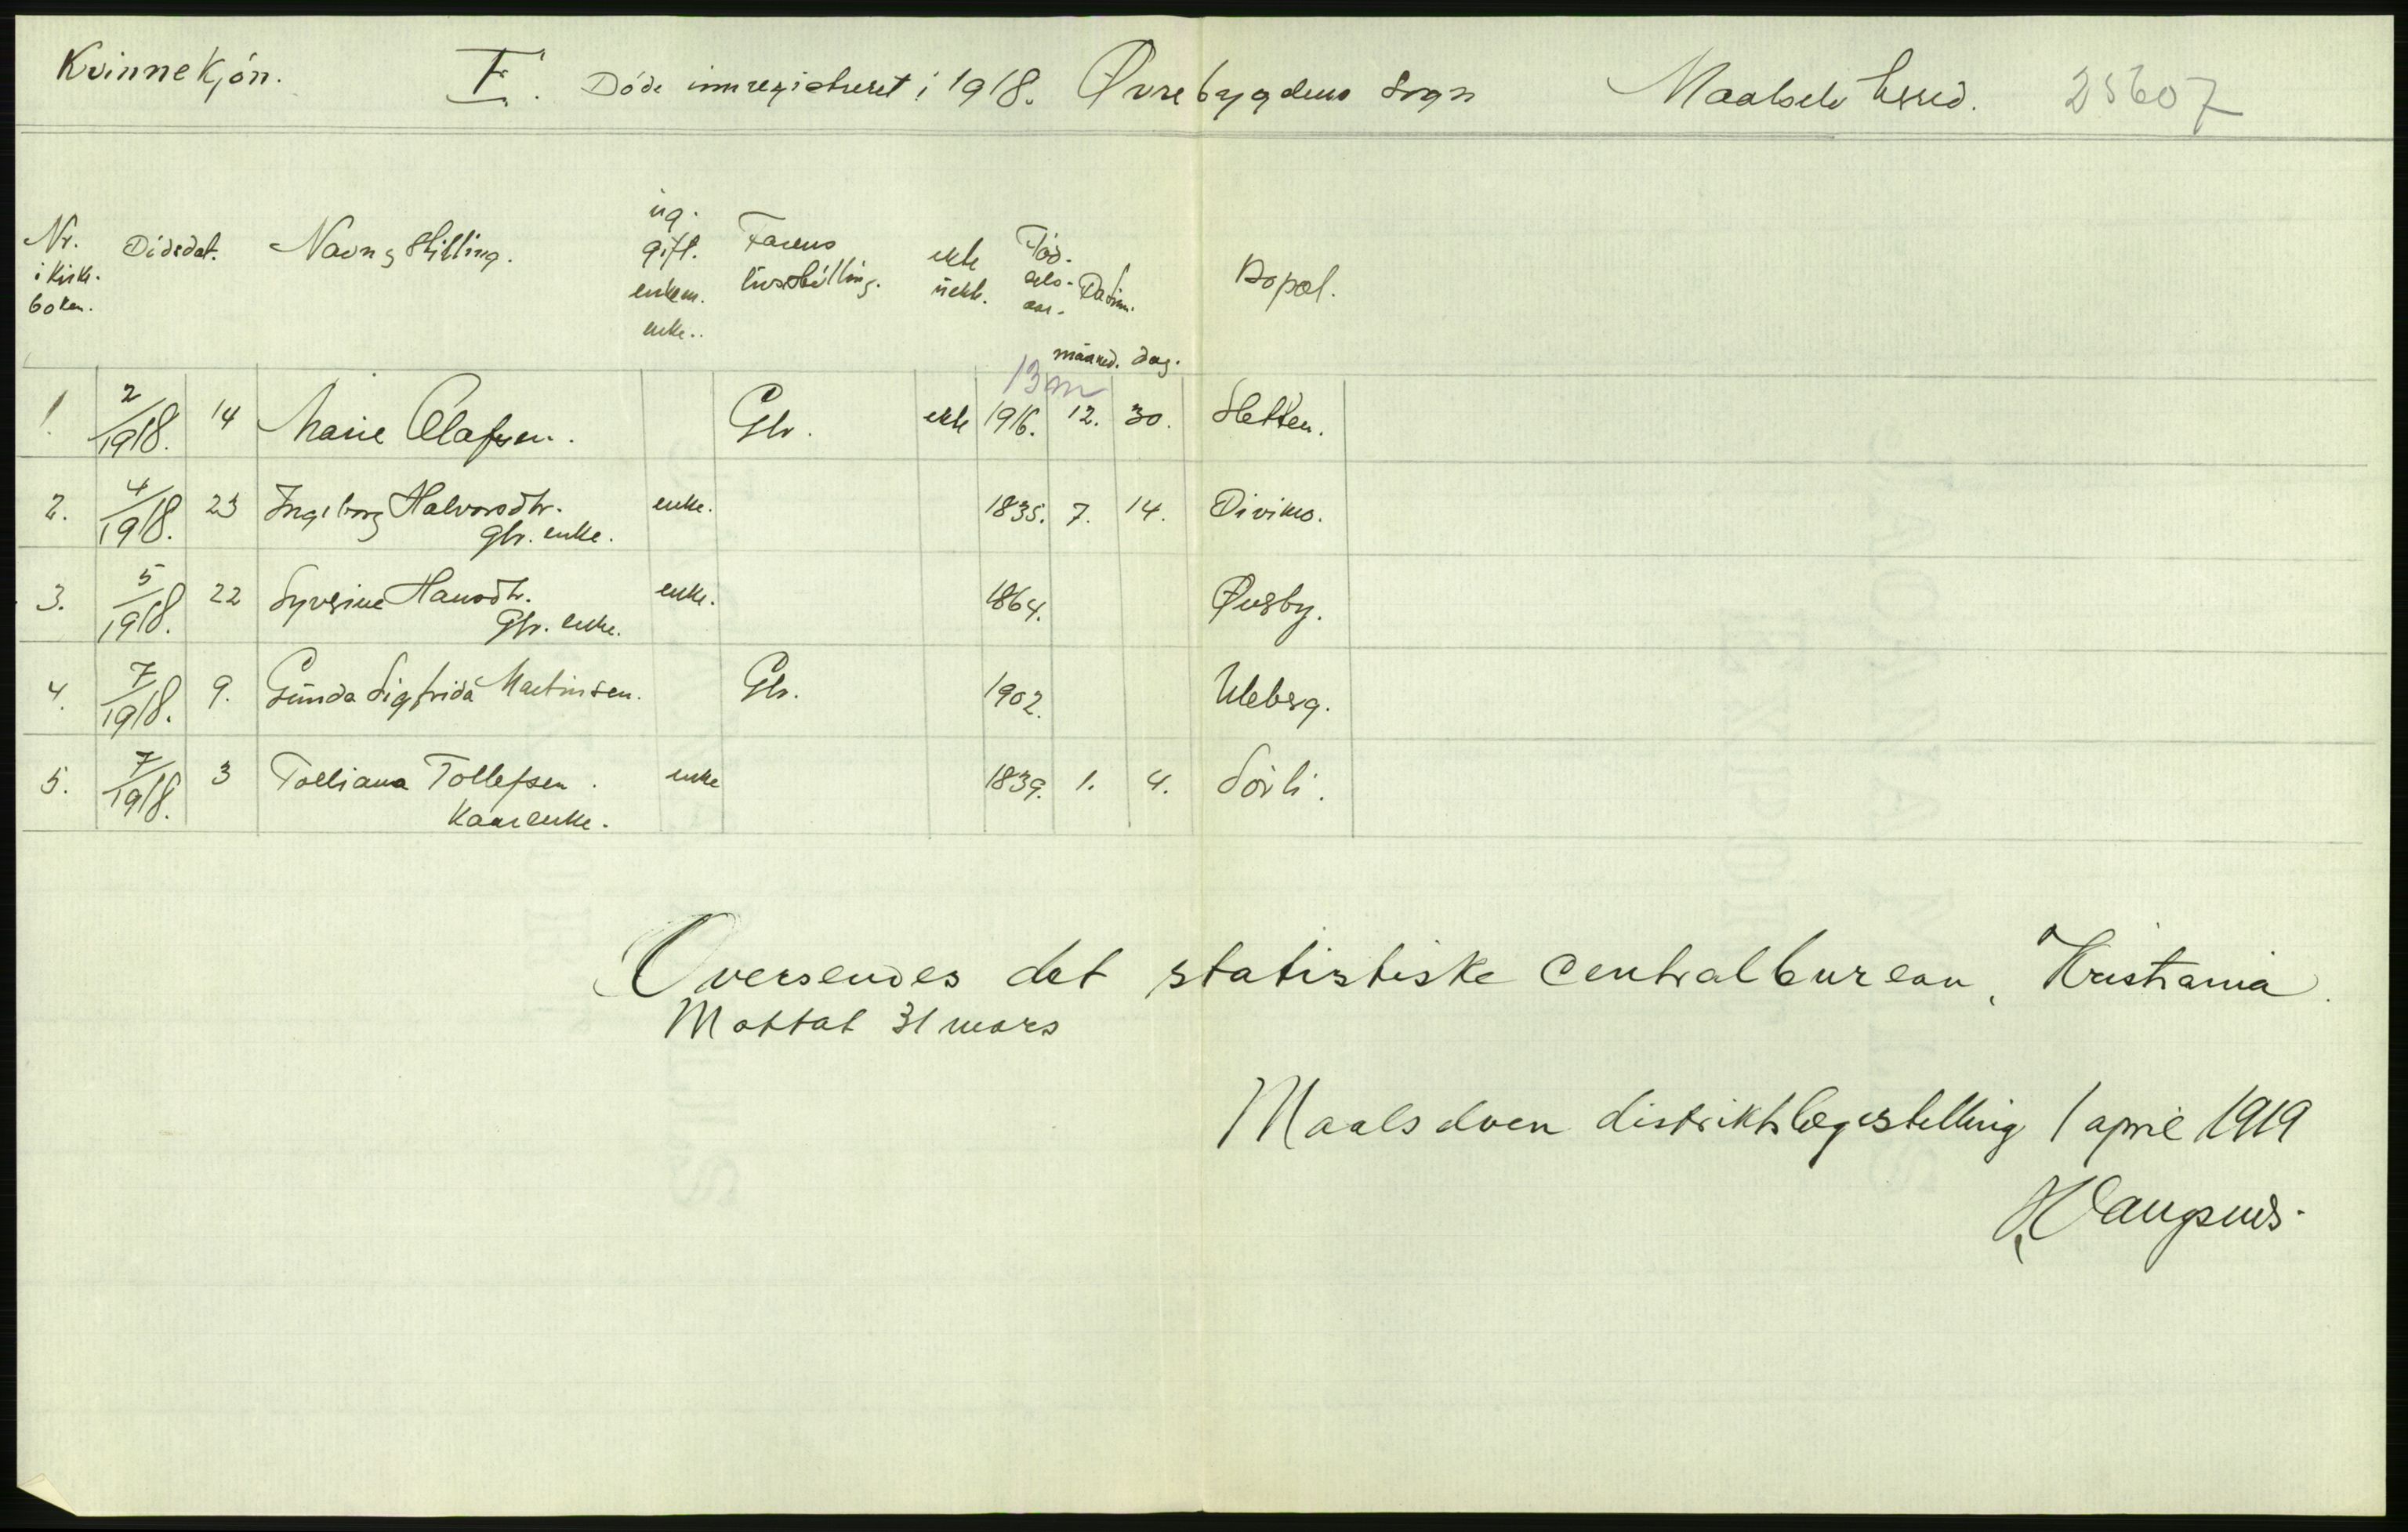 Kvinnekjón. F. Døde innregistreret i 1918. Øvrebygdens Sogn Maalselv herred. 25607
Nr. i kirkeboken. Dødsdat. Navn og stilling. ug. gift. enkem. enke. Farens livsstilling. ekte uekte. Fødselsaar. Datum. måned. dag. Bopæl.
13 m
1. 2/1918. 14 Marie Olafsen. Gbr. ekte 1916. 12. 30. Sletten.
2. 4/1918. 23 Ingeborg Halvorsdtr. Gbr. enke. enke. 1835. 7. 14. Divimo.
3. 5/1918. 22 Syverine Hansdtr. Gbr. enke. enke. 1864. Øvsby.
4. 7/1918. 9. Gunda Sigfrida Martinsen. Gbr. 1902. Uleberg.
5. 7/1918. 3 Tolliana Tollefsen. Kaarenke. enke 1839. 1. 4. Sörli.
Oversendes det statistiske centralbureau, Kristiania.
Mottat 31 mars
Maalselven distriktslægestilling 1 april 1919